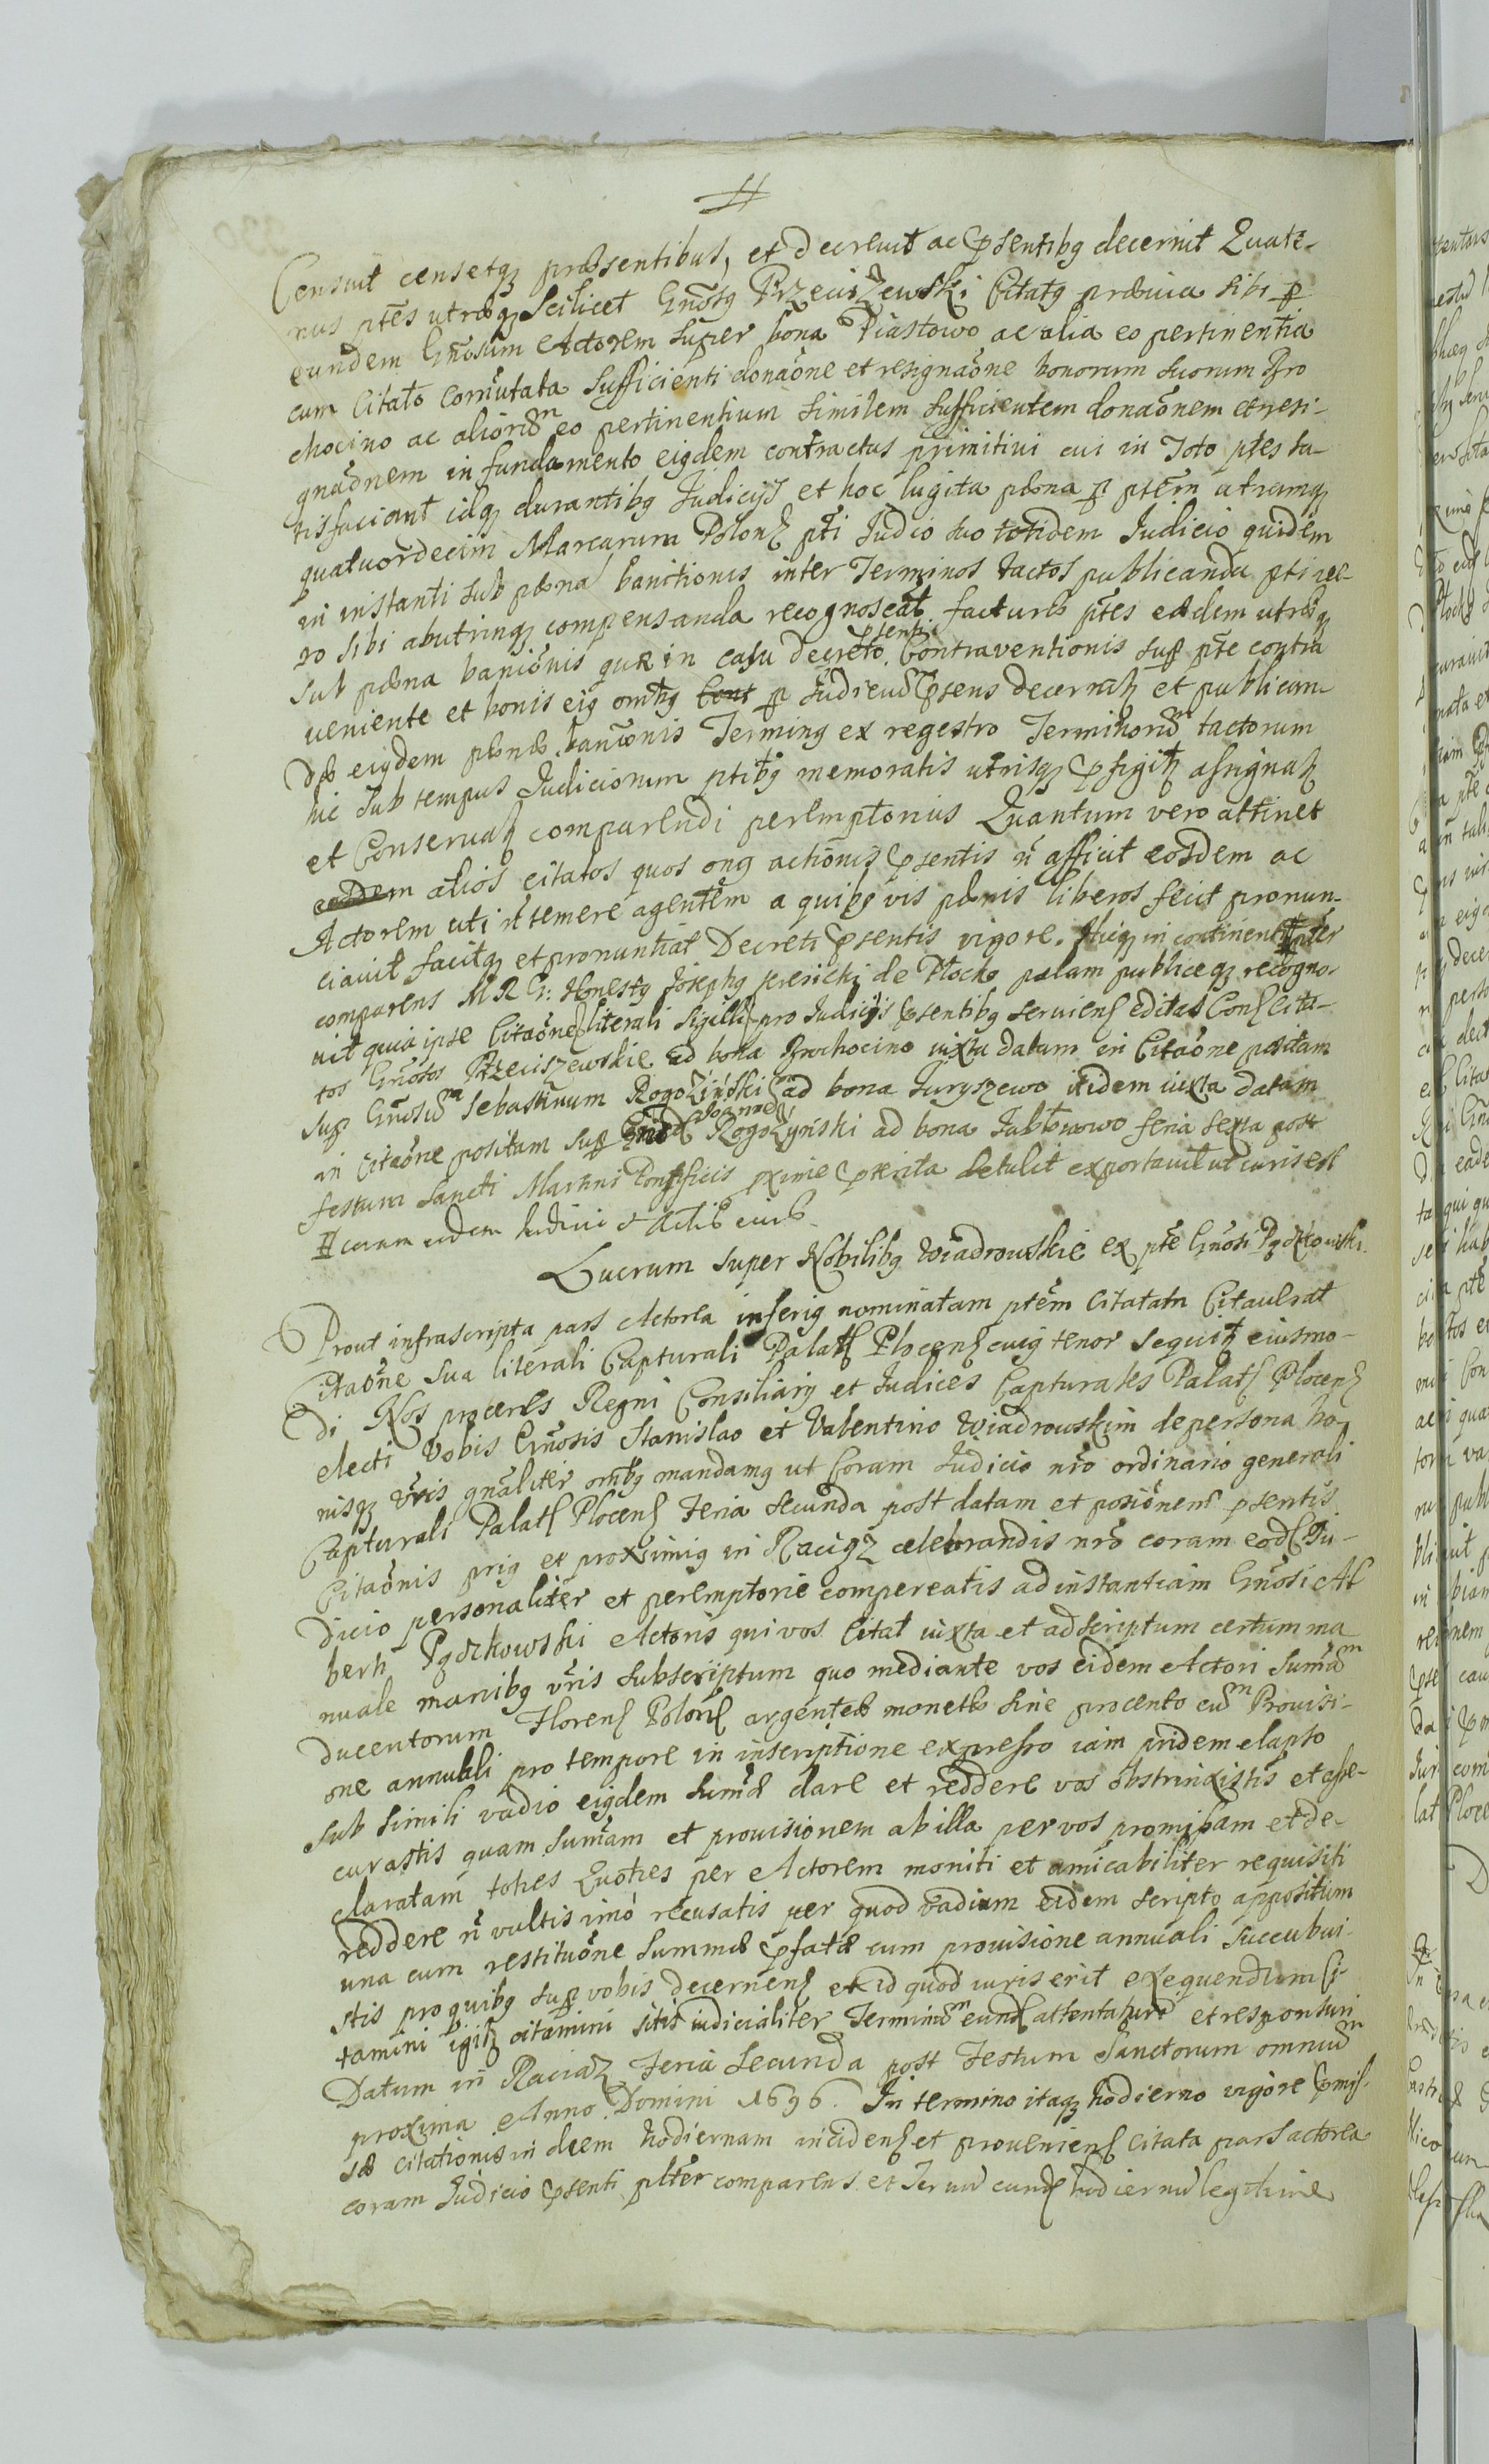 Censuit censetqꝫ præsentibus, et decreuit ac pſentibꝯ decernit Quate-
nus ptēs utræqꝫ Scilicet Gnōsꝯ Przeciszewski Citatꝯ præuia sibi ꝑ
eundem Gnōsum Actorem super bona Piastowo ac alia eo pertinentia
cum Citato com̃utata sufficienti donaōne et resignaōne bonorum suorum Bro
chocino ac aliorū eo pertinentium similem sufficientem donaōnem et resi-
gnaōnem in fundamento eiꝯdem contractus primitiui cui in Toto ptes sa-
tisfaciant idqꝫ durantibꝯ Iudicijs et hoc lugita pœna ꝑ ptēm utramqꝫ
quatuordecim Marcarum Polonꝫ pti Iudio suo totidem Iudicio quidem
in instanti sub pœna banitionis inter Terminos tactos publicanda pti ve-
ro sibi abutrinqꝫ compensanda recognoscāt facturæ ptēs eædem utræqꝫ
sub pœna baniōnis quæ in casu decreto pſenti Contraventionis suꝑ pte contra
ueniente et bonis eiꝯ om̃ibꝯ ꝑ Iudiciū pſens decernitꝫ et publican-
dæ eiꝯdem pœnæ baniōnis Terminꝯ ex regestro Terminorū tactorum
hic sub tempus Iudiciorum ptibꝯ memoratis utrisqꝫ pfigitꝫ assignatꝫ
et Conseruatꝫ comparendi peremptorius Quantum vero attinet
alios citatos quos onꝯ actionis pſentis ñ afficit eosdem ac
Actorem uti ñ temere agentem a quibꝯ vis pœnis liberos fecit pronun-
ciauit facitqꝫ et pronuntiat Decreti pſentis vigore. Hicqꝫ in continenti pſter
comparens M R G: Honestꝯ Iosephꝯ de Płocko palam publiceqꝫ recogno-
uit quia ipse Citaōneſ literali Sigillꝫ pro Iudicijs pſentibꝯ seruienſ editas Conſ cita-
tos Gnōsos Przeciszewskie ad bona Brochocino iuxta datam in Citaōne positam
suꝑ Gnōsū Sebastianum Rogoziński ad bona Turyszewo itidem iuxta datam
in citaōne positam suꝑ Gnōsū Ioannē Rogozyński ad bona Iabłonowo feria sexta post
festum Sancti Martini Pontificis ꝓxime pterita detulit exportauit ut iuris est
coram eodem Iudicio & Actis eius.
Lucrum super Nobilibꝯ Wiadrowskie ex pte Gnōsi Pączkowski.
Prout infrascripta pars Actorea inferiꝯ nominatam ptēm citatam Citauerat
Citaōne sua literali Capturali Palatꝫ Plocenꝫ cuiꝯ tenor sequitꝫ eiusmo-
di Nos proceres Regni Consiliarÿ et Iudices Capturales Palatꝫ Plocenꝫ
electi Vobis Gnōsis Stanislao et Valentino Wiadrowskim de persona bo-
nisqꝫ vr̃is gnāliter om̃ibꝯ mandamꝯ ut Coram Iudicio nr̃o ordinario generali
Capturali Palatꝫ Plocenꝫ Feria Secunda post datam et posiōnem pſentis
Citaōnis priꝯ et proximiꝯ in Raciąz celebrandis nrō coram eodꝫ Iu-
dicio personaliter et peremptorie compereatis ad instantiam Gnōsi Al
berti Pączkowski Actoris qui vos Citat iuxta et ad scriptum certum ma
nuale manibꝯ vr̃is subscriptum quo mediante vos eidem Actori sum̃ā
ducentorum Florenꝫ Polonꝫ argenteæ monetæ sine procento cū Prouisi-
one annuali pro tempore in inscriptione expresso iam pridem elapso
sub simili vadio eiꝯdem sum̃æ dare et reddere vos obstrinxistis et asse-
curastis quam sum̃am et prouisionem ab illa per vos promissam et de-
claratam toties Quoties per Actorem moniti et amicabiliter requisiti
reddere ñ vultis imò recusatis per quod vadium eidem scripto appositum
una cum restituōne summæ pfatæ cum prouisione annuali succubui-
stis pro quibꝯ suꝑ vobis decernenꝫ et id quod iuris erit exequendum Ci-
tamini igitꝫ citamini sitis iudicialiter Terminū eundꝫ attentaturi et responsuri
Datum in Raciąz Feria Secunda post Festum Sanctorum omniū
proxima Anno Domini 1696. In termino itaqꝫ hodierno vigore pmis-
sæ citationis in diem hodiernam incidenꝫ et prouenienꝫ citata pars actorea
coram Iudicio pſenti plter comparens et Ternū eundꝫ hodiernū legitime